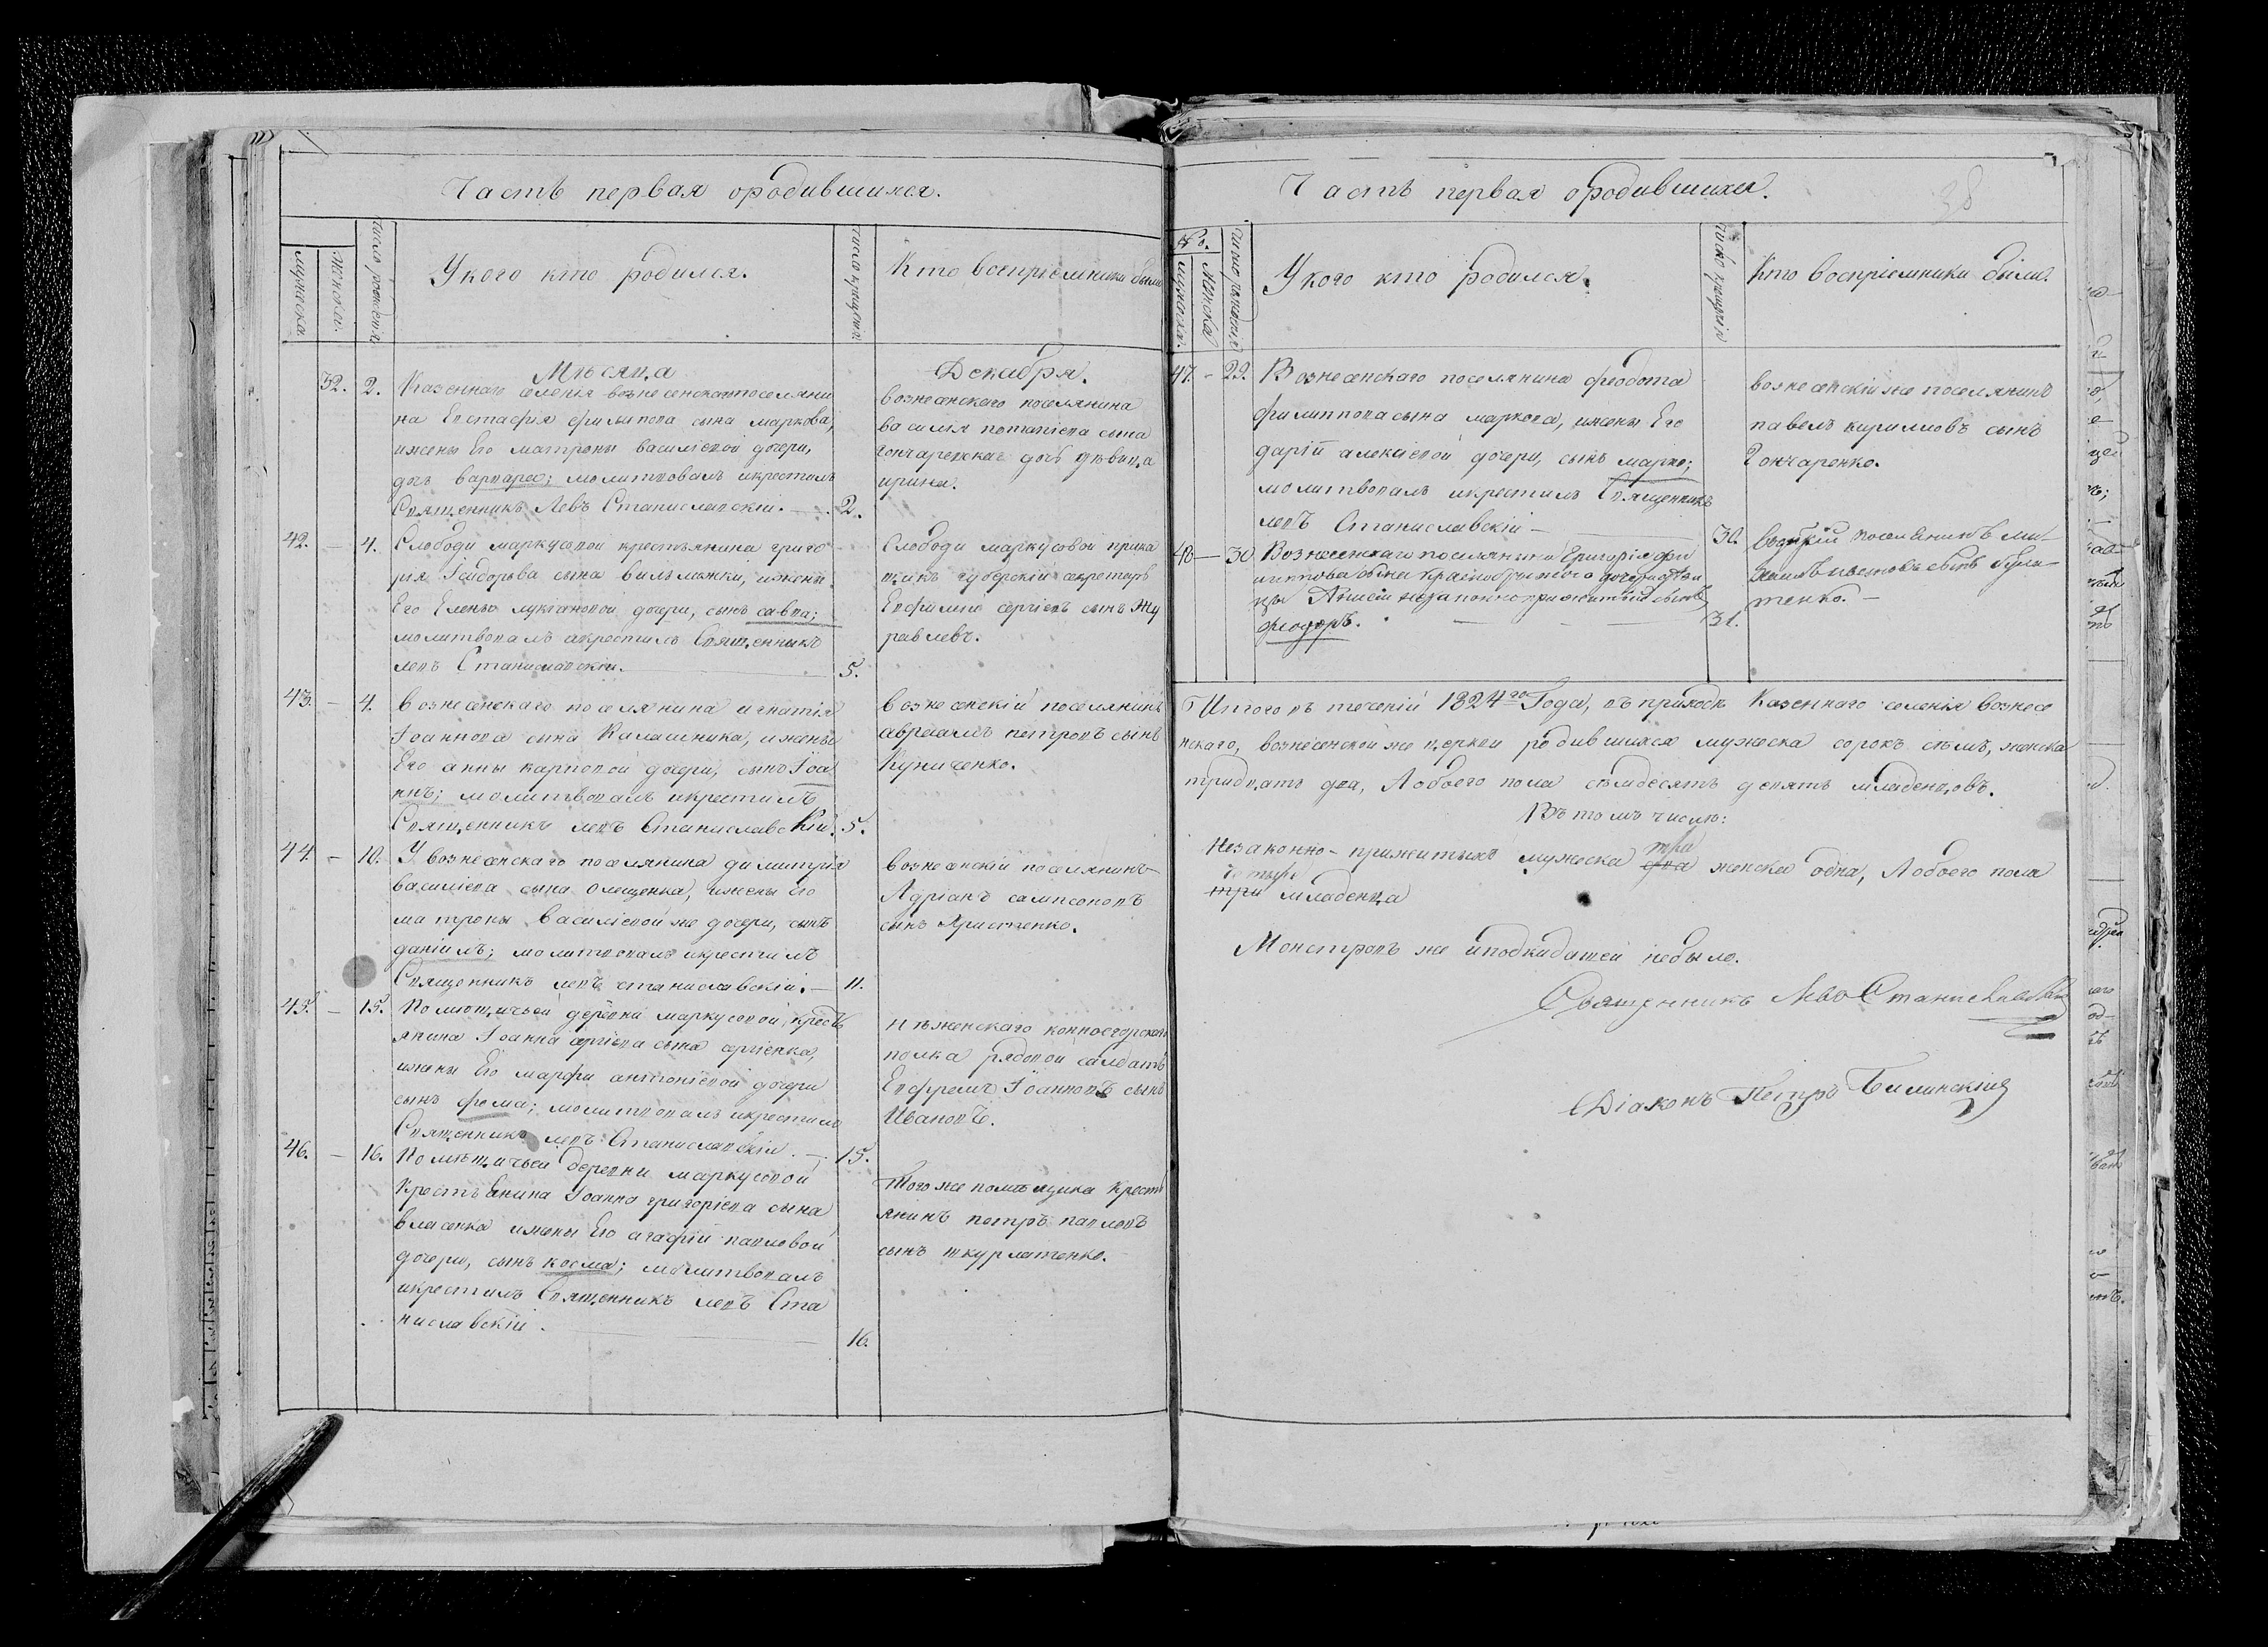 Часть первая ородившихся.
мужеска.
женска.
число рождения
У кого кто родился.
число крещения
Кто воспріемники были
Мѣсяца
Декабря.
32.
2.
Казеннаго селенія вознесенскаго поселяни
на Евстафія филипова сына маркова,
ижены Его матроны василіевой дочери,
дочь варвара; молитвовалъ икрестилъ
Священникъ Левъ Станиславскій.
2.
вознесенскаго поселянина
василія потапіева сына
гончаренка дочь дѣвица
ирина.
42.
4.
Слободи маркусовой крестьянина григо
рія Ісидорова сына вильможки, ижены
Его Елены лукіановой дочери, сынъ савва;
молитвовалъ икрестилъ Священникъ
левъ Станиславскій.
5.
Слободи маркусовой прика
щикъ губерскій секретарь
Евфимій сергіевъ сынъ Жу
равлевъ.
43.
4.
вознесенскаго поселянина игнатія
Іоаннова сына Калашника, ижены
Его анны карповой дочери, сынъ Іоа
ннъ; молитвовалъ икрестилъ
Священникъ левъ Станиславскій.
5.
вознесенскій поселянинъ
авраамъ петровъ сынъ
Куниченко.
44.
10.
У вознесенскаго поселянина димитрія
василіева сына Олещенка, ижены Его
матроны василіевой же дочери, сынъ
даніилъ; молитвовалъ икрестилъ
Священникъ левъ станиславскій.
11.
вознесенскій поселянинъ
Адріанъ сампсоновъ
сынъ Христенко.
45.
15.
Помющичьей деревни маркусовой, кресть
янина Іоанна сергіева сына сергіенка,
ижены Его марфи антоніевой дочери
сынъ фома; молитвовалъ икрестилъ
Священникъ левъ Станиславскій.
15.
нѣженскаго конноегорскаго
полка рядовой салдатъ
Евфремъ Іоанновъ сынъ
Ивановъ.
46.
16.
Помѣщичьей деревни маркусовой
крестьянина Іоанна григоріева сына
власенка ижены Его агафіи павловой
дочери, сынъ косма; молитвовалъ
икрестилъ Священникъ левъ Ста
ниславскій.
16.
Тогоже помѣщика крест
янинъ петръ павловъ
сынъ шкурлатенко.
Часть первая ородившихся.
38
№.
мужеска.
женска
число рожденія
У кого кто родился.
число крещенія
Кто воспріемники были.
47.
29.
Вознесенскаго поселянина феодота
филиппова сына маркова, ижены Его
дарій алексіевой дочери, сынъ марко;
молитвовалъ икрестилъ Священникъ
левъ Станиславскій
30.
вознесенскій же поселянинъ
павелъ кириловъ сынъ
Гончаренко.
48
30
Вознесенскаго поселянина Григорія фи
липпова сына
незаконноприжитый сынъ
феодоръ.
31.
поселянинъ ми-
хаилъ
тенко.
Итого въ теченій 1824го Года, въ приходѣ Казеннаго селенія вознесе
нскаго, вознесенской же церкви родившихся мужеска сорокъ семъ, женска
тридцать два, Аобоего пола сѣмдесятъ девять младенцовъ.
Въ томъ числѣ:
Незаконно-прижитыхъ мужеска два три женска одна, Аобоего пола
три четыри младенца
Монстровъ же иподкидашей небыло.
Священникъ Левъ Станиславскій
Діаконъ Петръ Билинскій